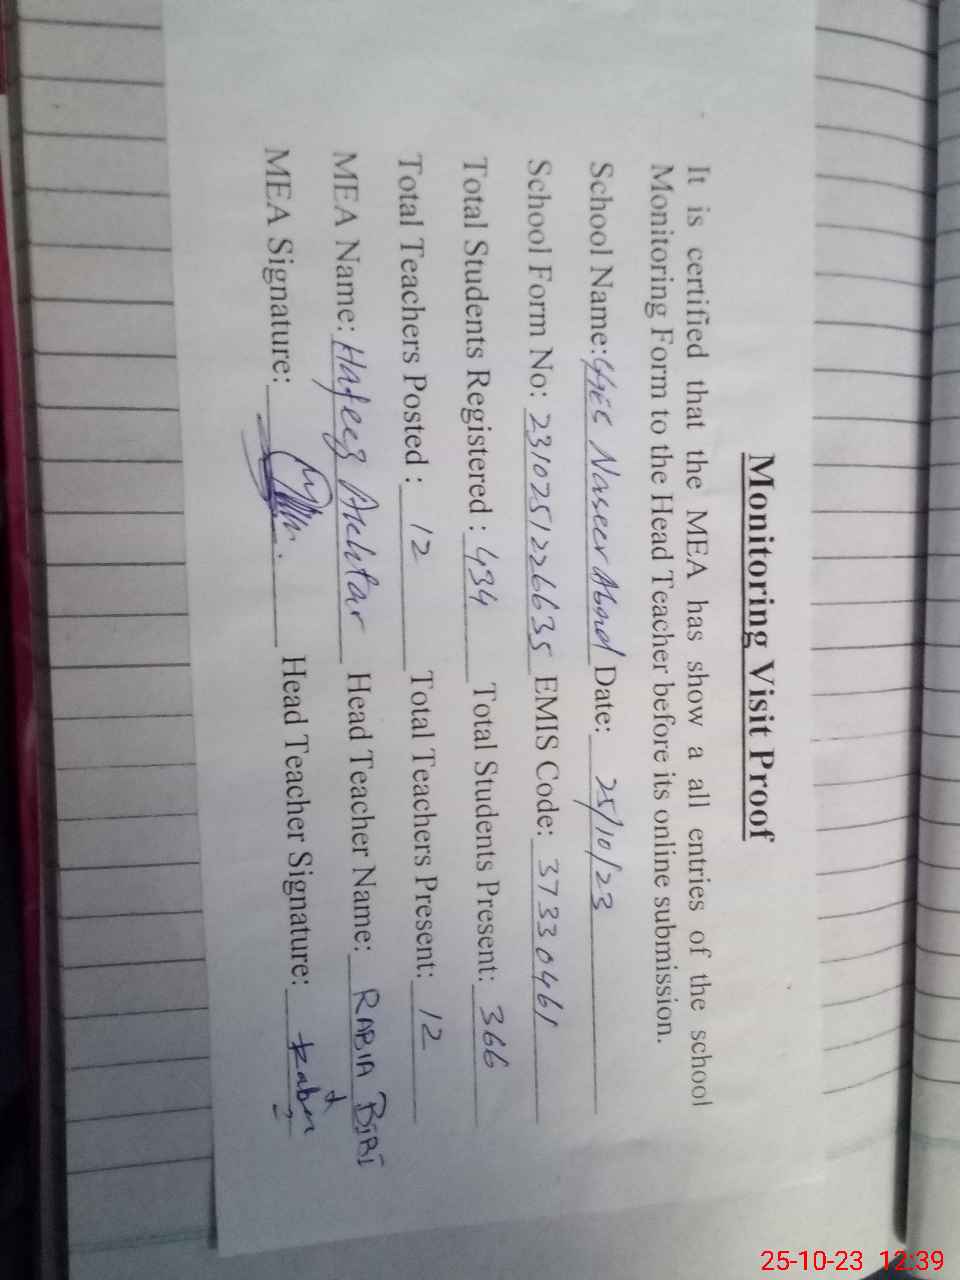 Monitoring Visit Proof
It is certified that the MEA has show a all entries of the school
Monitoring Form to the Head Teacher before its online submission.
School Name: Naseer Abad Date: 25/10/23
School Form No: 2310251226635 EMIS Code: 37330461
Total Students Registered : 434 Total Students Present: 366
Total Teachers Posted : 12 Total Teachers Present: 12
MEA Name: Hafeez Akhtar Head Teacher Name: RABIA BiBi
MEA Signature: Head Teacher Signature:
25-10-23 12:39